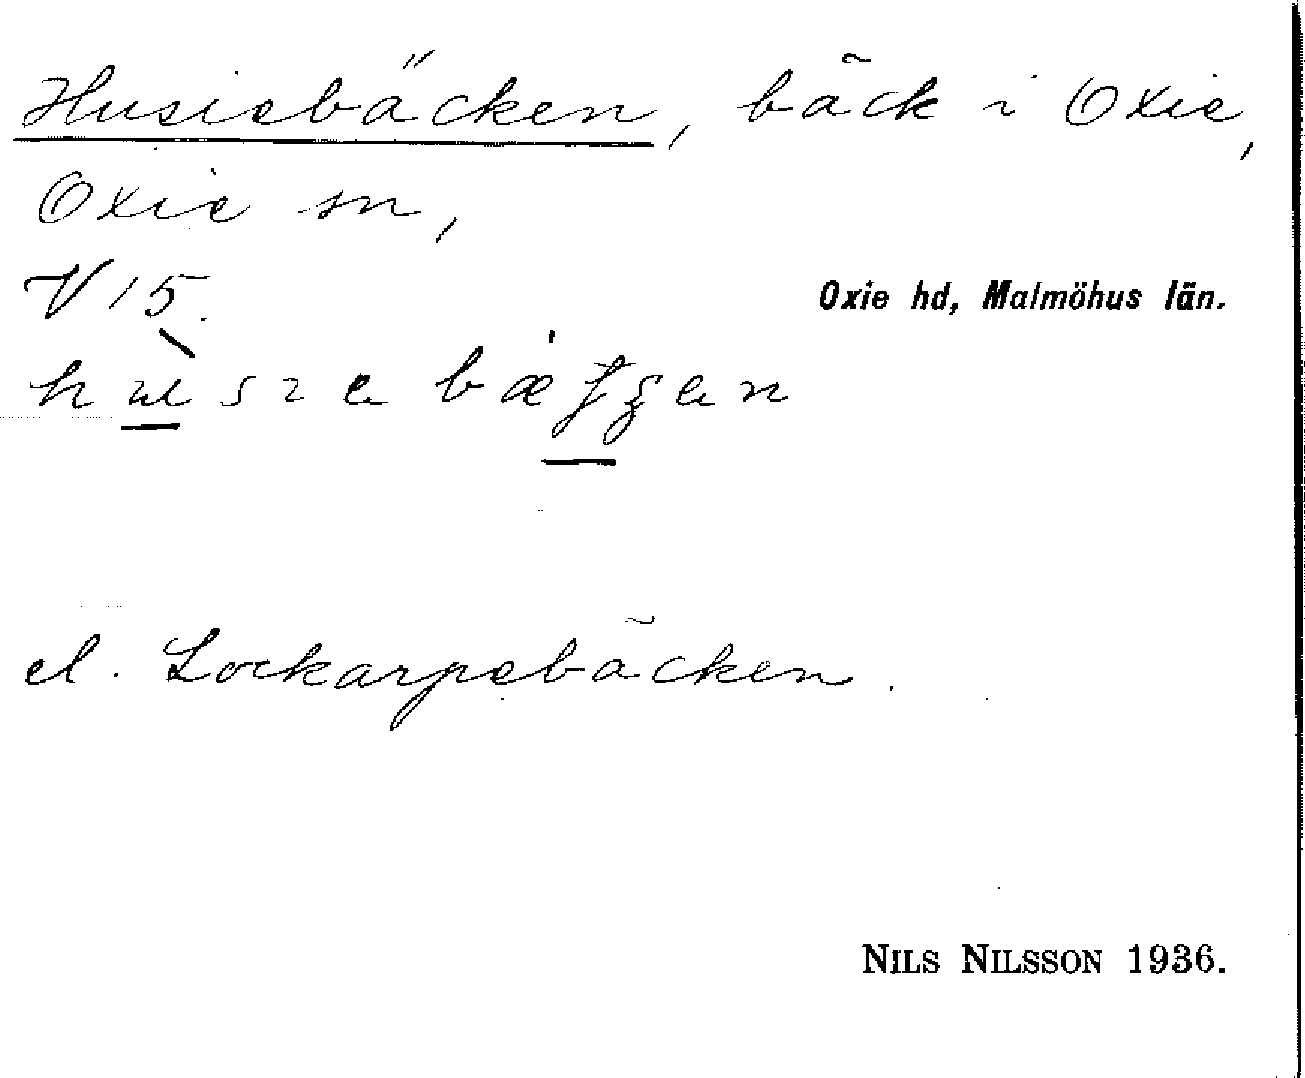 Husiebäcken, bäck i Oxie,
Oxie sn,
V 15.
Oxie hd, Malmöhus län.
el. Lockarpebäcken.
NILS NILSSON 1936.